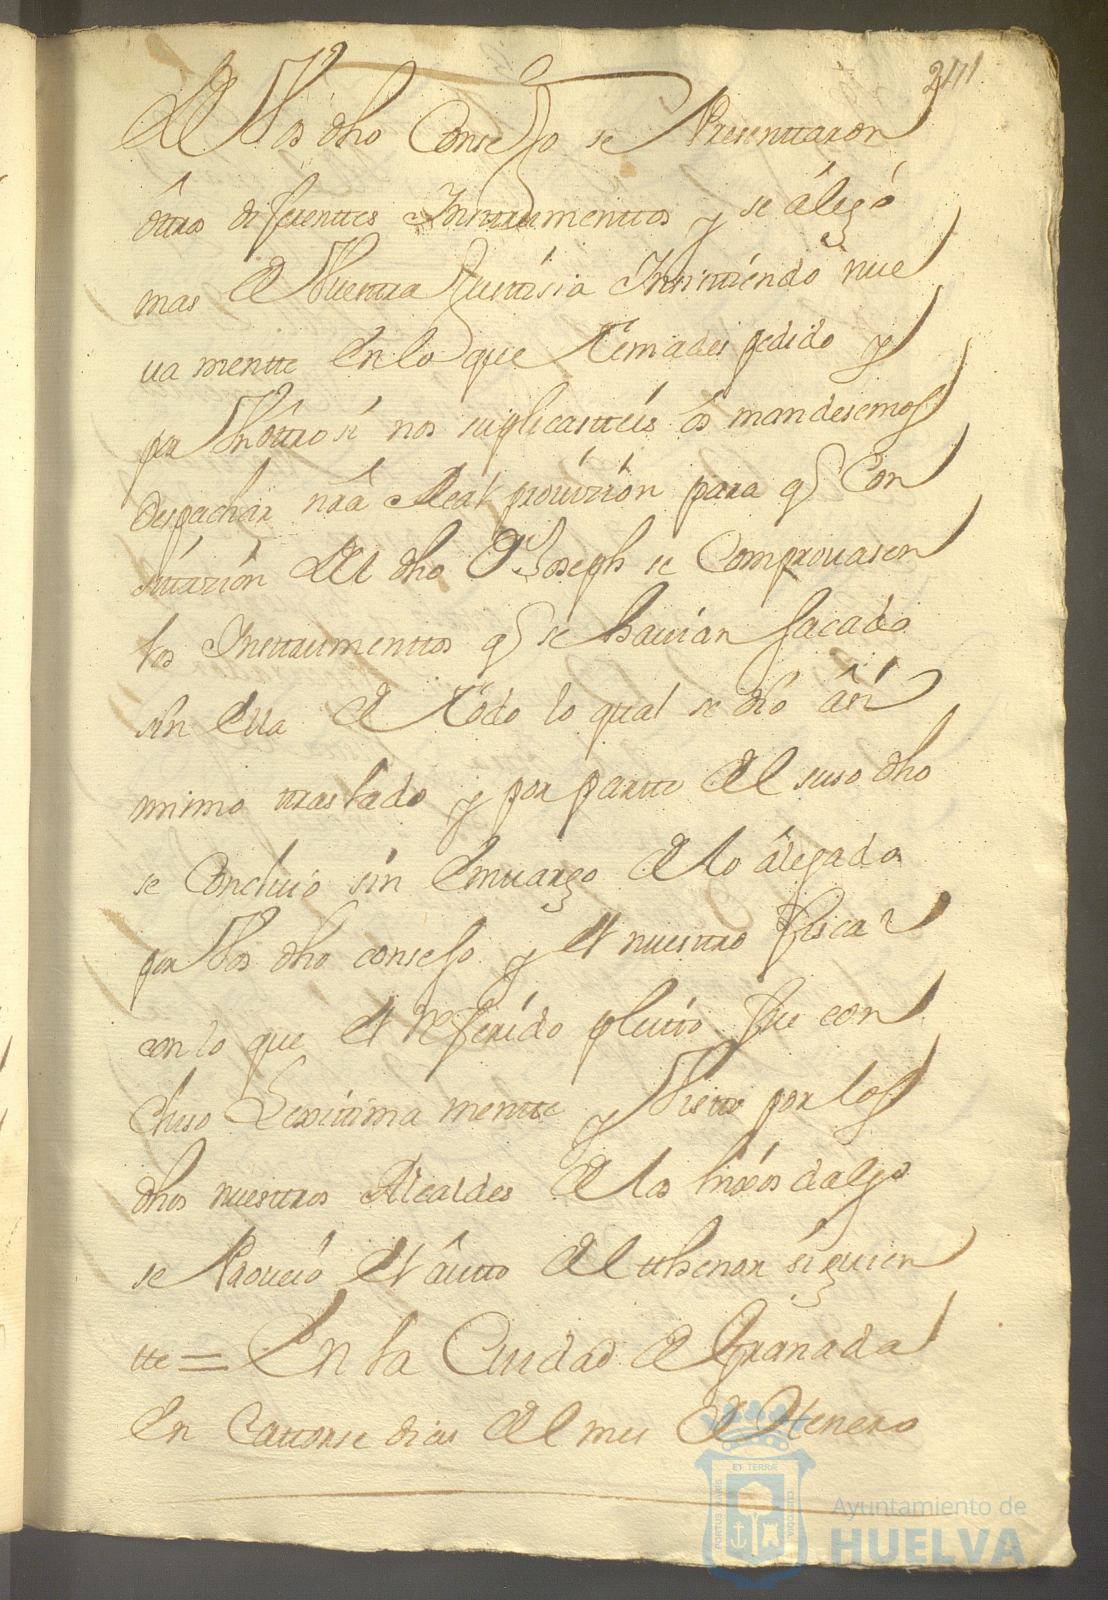 241
de Vos dho Consejo se Presenttaron
ôttros diferenttes Ynsttrumenttos y se âlegó
mas de Vuesttra Justtisia Ynsisttiendo nue
ua mentte en lo que teniades pedido y
por Vn ôttro si nos suplicastteis ôs mandasemos
despachar nrâ Real prouizión para q̃ Con
sittazión del dho Dn Joseph se Comprouasen
los Ynsttrumenttos q̃ se hauian sacado
sin ella de todo lo qual se dió âsi
mismo ttraslado y por partte del suso dho
se Concluió sin émuargo de lo âlegado
por Vos dho consejo y el nuesttro fiscal
con lo que el referido pleitto fue con
cluso Lexittima mentte y Visto por los
dhos nuesttros Alcaldes de los hixos dalgo
se Proueió el âutto del thenor siguien
tte = En la Ciudad de Granada
en Cattorse dias del mes de Henero
PORTUS MARIS
ET TERRÆ
CUSTODIA
Ayuntamiento de
HUELVA